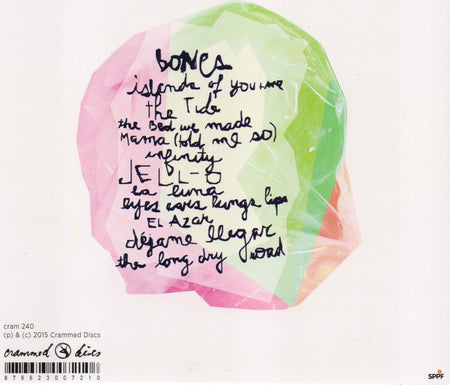 bones
islands of you + me
the Tide
the Bed we made
Mama (told me so)
infinity
JELL-O
la luna
eyes ears lungs lips
EL AZAR
déjame llegar
the long dry road
cram 240
(p) & (c) 2015 Crammed Discs
crammed discs
876623007210
SPPF